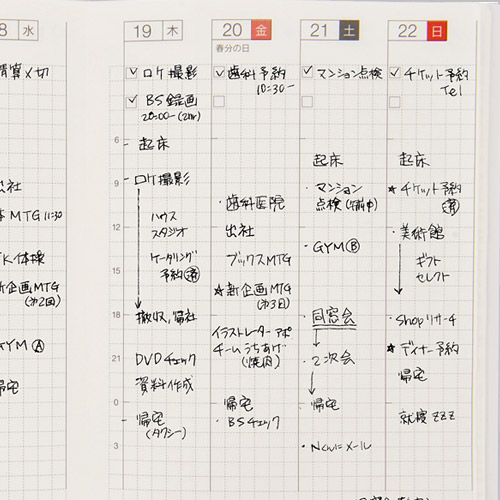 8 水
精算〆切
出社
MTG 11:30
K.体操
新企画MTG
(第2回)
GYM Ⓐ
帰宅
19 木
✓ ロケ撮影
✓ BS録画
20:00-(2hr)
6
起床
9
ロケ撮影
ハウス
スタジオ
12
ケータリング
予約 済
15
18
撤収、帰社
21
DVDチェック
資料作成
0
帰宅
(タクシー)
3
20 金
春分の日
✓ 歯科予約
10:30-
・歯科医院
出社
ブックスMTG
★新企画MTG
(第3回)
イラストレーターアポ
チームうちあげ
(焼肉)
帰宅
・BSチェック
21 土
✓ マンション点検
起床
・マンション
点検(午前中)
・GYM Ⓑ
同窓会
2次会
帰宅
・Newにメール
22 日
✓ チケット予約
Tel
起床
★チケット予約
済
・美術館
ギフト
セレクト
Shopリサーチ
★ディナー予約
帰宅
就寝ZZZ